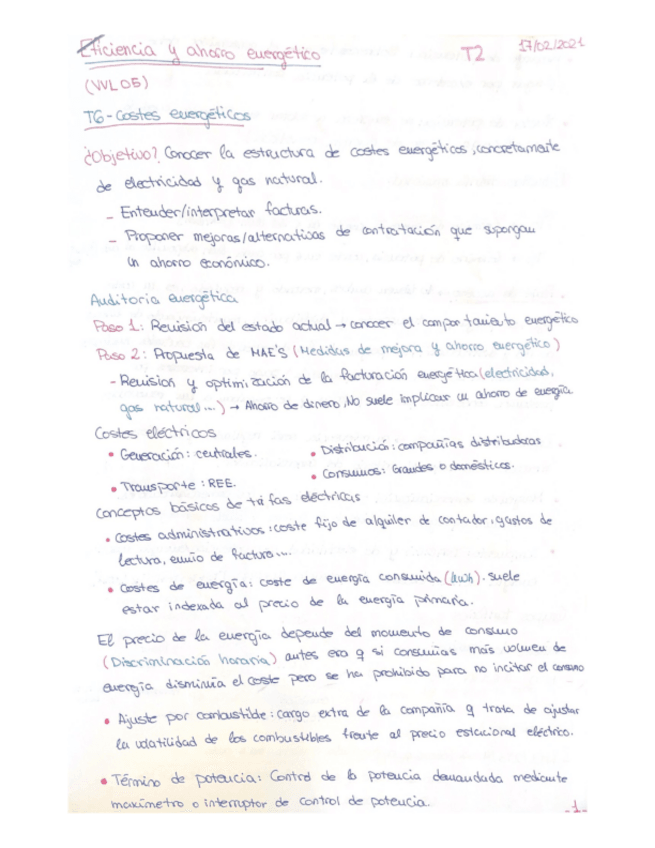 Eficiencia y ahorro energético T2 17/02/2021
(VVL05)
T6-Costes energéticos
¿Objetivo? Conocer la estructura de costes energéticos, concretamente
de electricidad y gas natural.
- Entender/interpretar facturas.
- Proponer mejoras/alternativas de contratación que supongan
un ahorro económico.
Auditoria energética
Paso 1: Revisión del estado actual → conocer el comportamiento energético
Paso 2: Propuesta de MAE'S (Medidas de mejora y ahorro energético)
- Revision y optimización de la facturación energética (electricidad,
gas natural...) → Ahorro de dinero, No suele implicar un ahorro de energía
Costes eléctricos
• Generación: centrales.
• Distribución: compañías distribuidoras
• Transporte: REE.
• Consumos: Grandes o domésticos.
Conceptos básicos de tarifas eléctricas
• Costes administrativos: coste fijo de alquiler de contador, gastos de
lectura, envio de factura...
• Costes de energía: coste de energía consumida (kwh). suele
estar indexada al precio de la energía primaria.
El precio de la energía depende del momento de consumo
(Discriminación horaria) antes era q si consumías más volumen de
energía disminuía el coste pero se ha prohibido para no incitar el consumo
• Ajuste por combustible: cargo extra de la compañía q trata de ajustar
la volatilidad de los combustibles frente al precio estacional eléctrico.
• Término de potencia: Control de la potencia demandada mediante
maxímetro o interruptor de control de potencia.
-1-